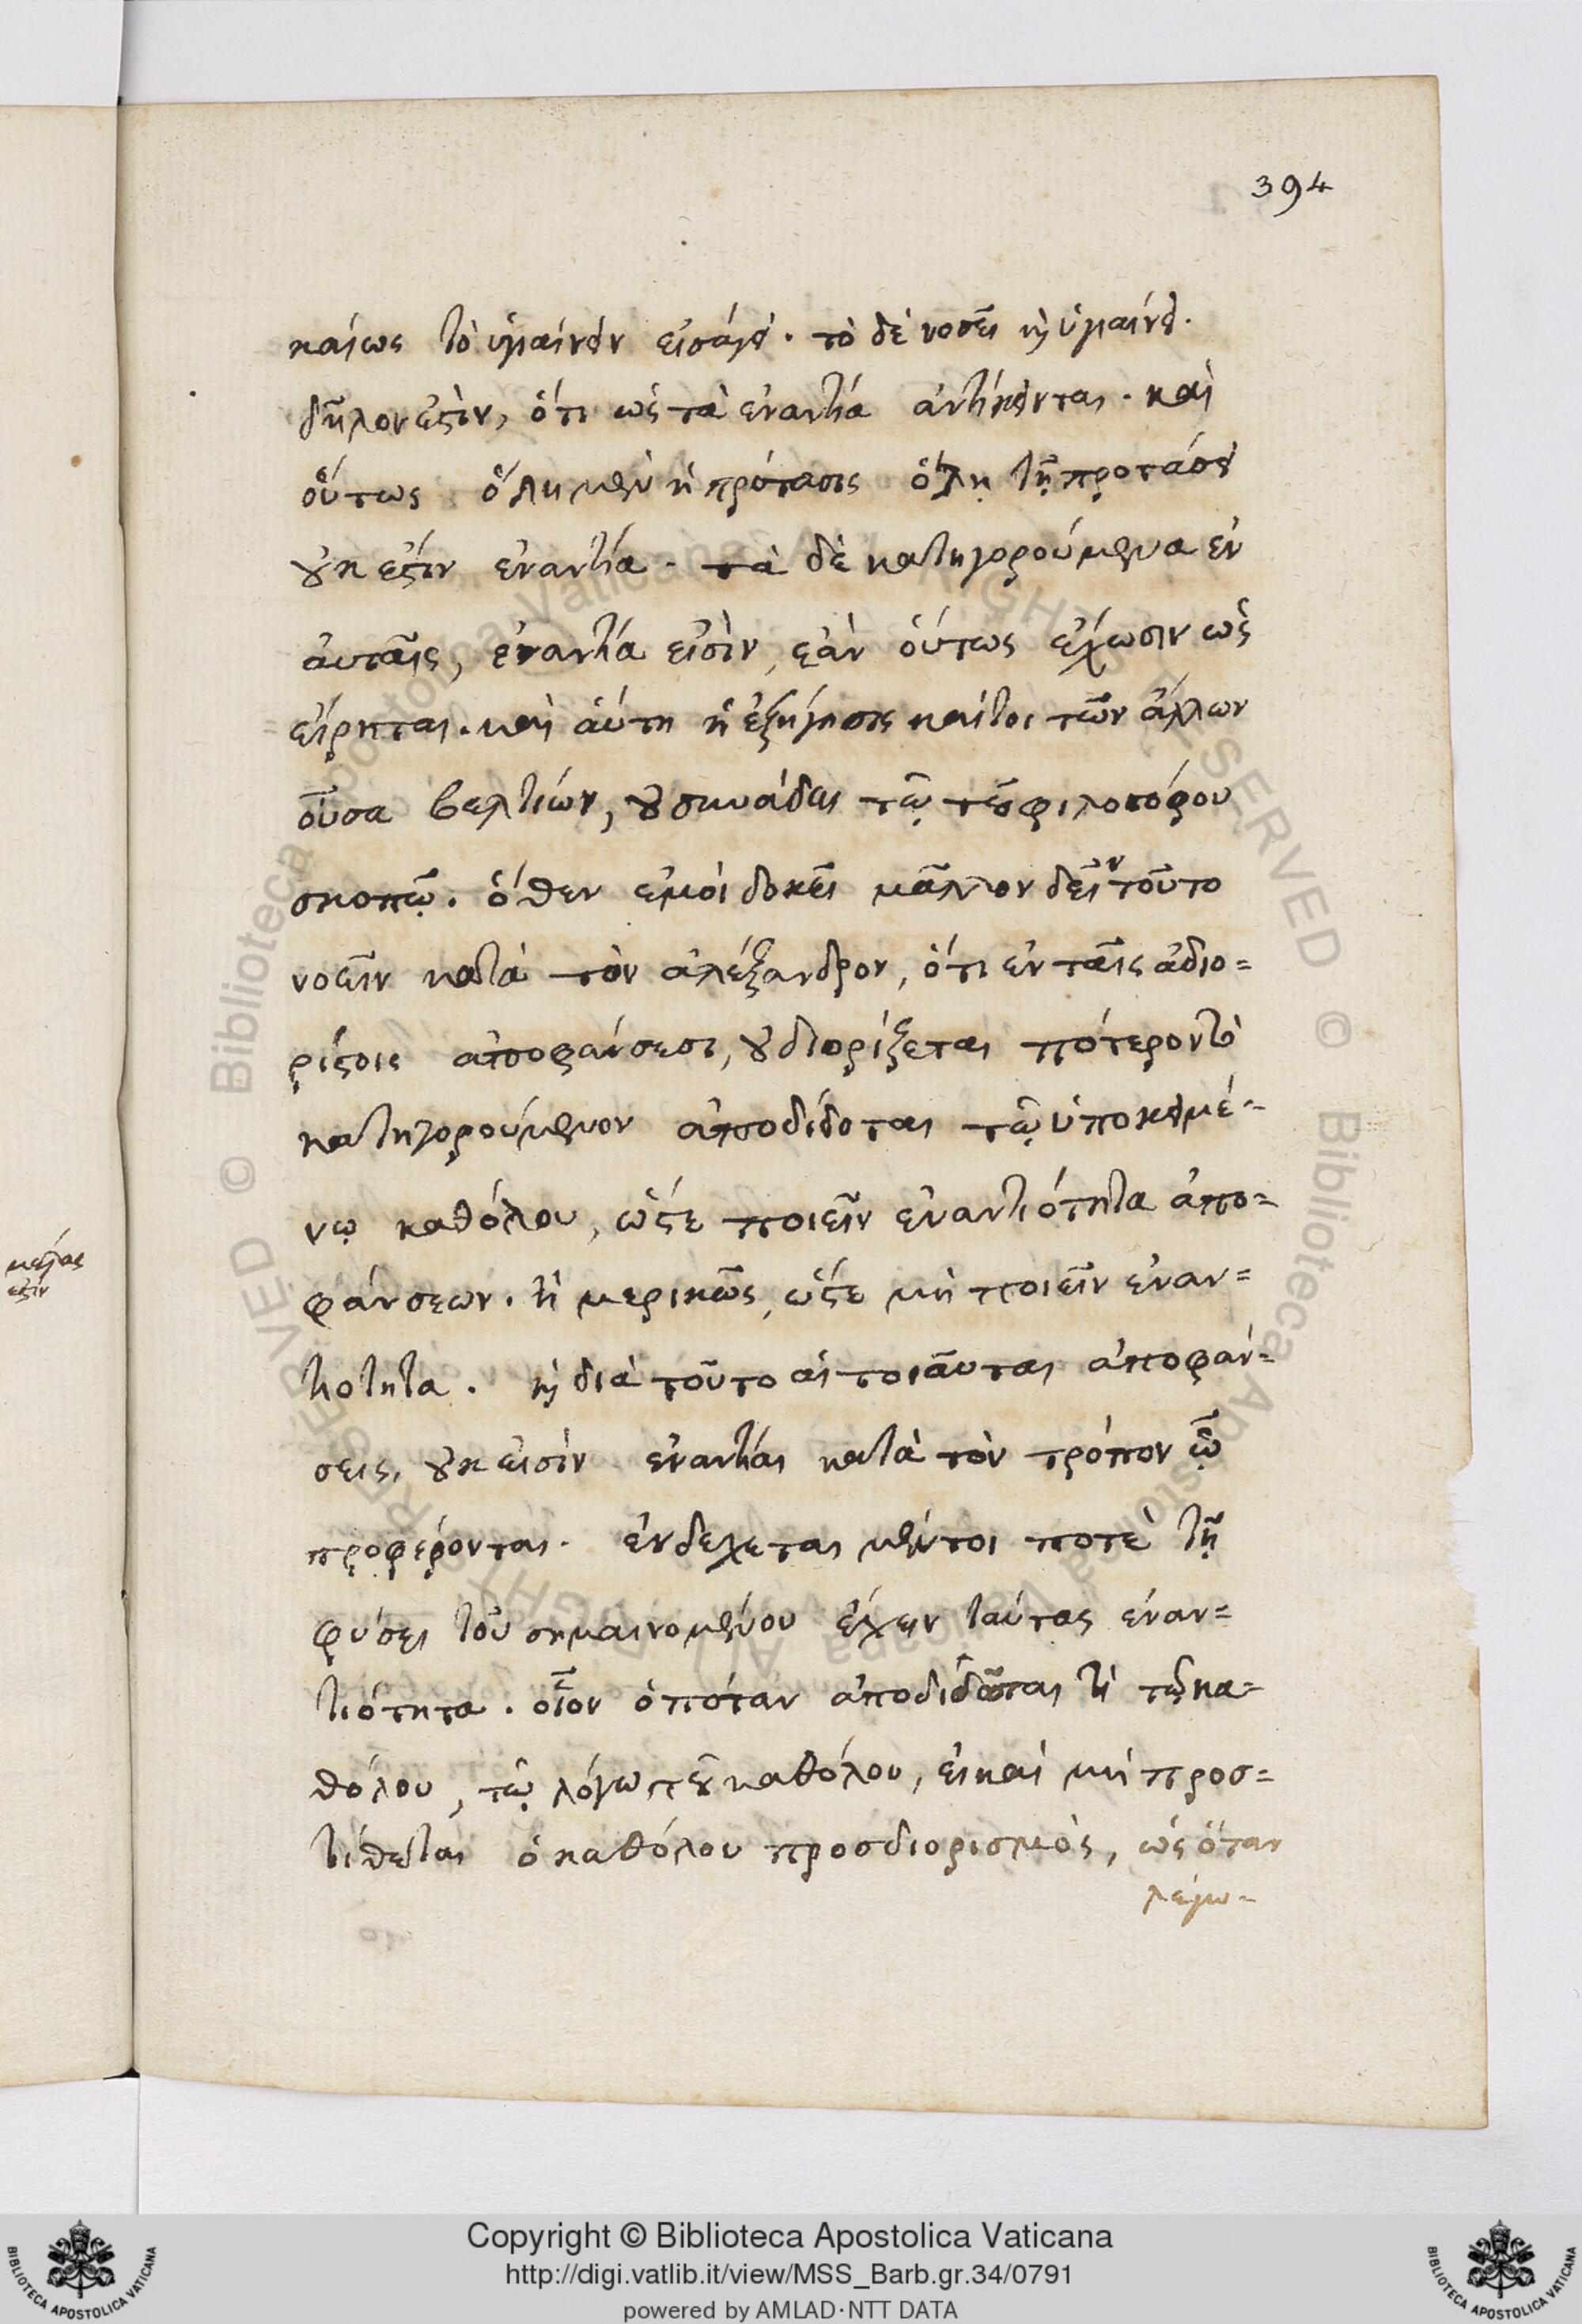 394
καίως τὸ ὑγιαίνειν εἰσάγει. τὸ δὲ νοσεῖ καὶ ὑγιαίνει.
δῆλον ἐστὶν, ὅτι ὡς τὰ ἐναντία ἀντίκεινται. καὶ
οὕτως ὅλη μὲν ἡ πρότασις ὅλῃ τῇ προτάσει
οὐκ ἐστὶν ἐναντία. τὰ δὲ κατηγορούμενα ἐν
αὐταῖς, ἐναντία εἰσὶν, ἐὰν οὕτως ἔχωσιν ὡς
εἴρηται. καὶ αὕτη ἡ ἐξήγησις καίτοι τῶν ἄλλων
οὖσα βελτίων, οὐ συνάδει τῷ τοῦ φιλοσόφου
σκοπῷ. ὅθεν ἐμοὶ δοκεῖ μᾶλλον δεῖν τοῦτο
νοεῖν κατὰ τὸν ἀλέξανδρον, ὅτι ἐν ταῖς ἀδιο=
ρίστοις ἀποφάνσεσι, οὐ διορίζεται πότερον τὸ
κατηγορούμενον ἀποδίδοται τῷ ὑποκειμέ-
νῳ καθόλου, ὥστε ποιεῖν ἐναντιότητα ἀπο=
φάνσεων. ἢ μερικῶς, ὥστε μὴ ποιεῖν ἐναν=
τιότητα. καὶ διὰ τοῦτο αἱ τοιαῦται ἀποφάν=
σεις, οὐκ εἰσὶν ἐναντίαι κατὰ τὸν τρόπον ᾧ
προφέρονται. ἐνδέχεται μέντοι ποτὲ τῇ
φύσει τοῦ σημαινομένου ἔχειν ταύτας ἐναν=
τιότητα. οἷον ὁπόταν ἀποδίδοται τὶ τῷ κα=
θόλου, τῷ λόγῳ τοῦ καθόλου, εἰ καὶ μὴ προσ=
τίθεται ὁ καθόλου προσδιορισμὸς, ὡς ὅταν
λέγω-
ἐστιν
Copyright © Biblioteca Apostolica Vaticana
http://digi.vatlib.it/view/MSS_Barb.gr.34/0791
powered by AMLAD·NTT DATA